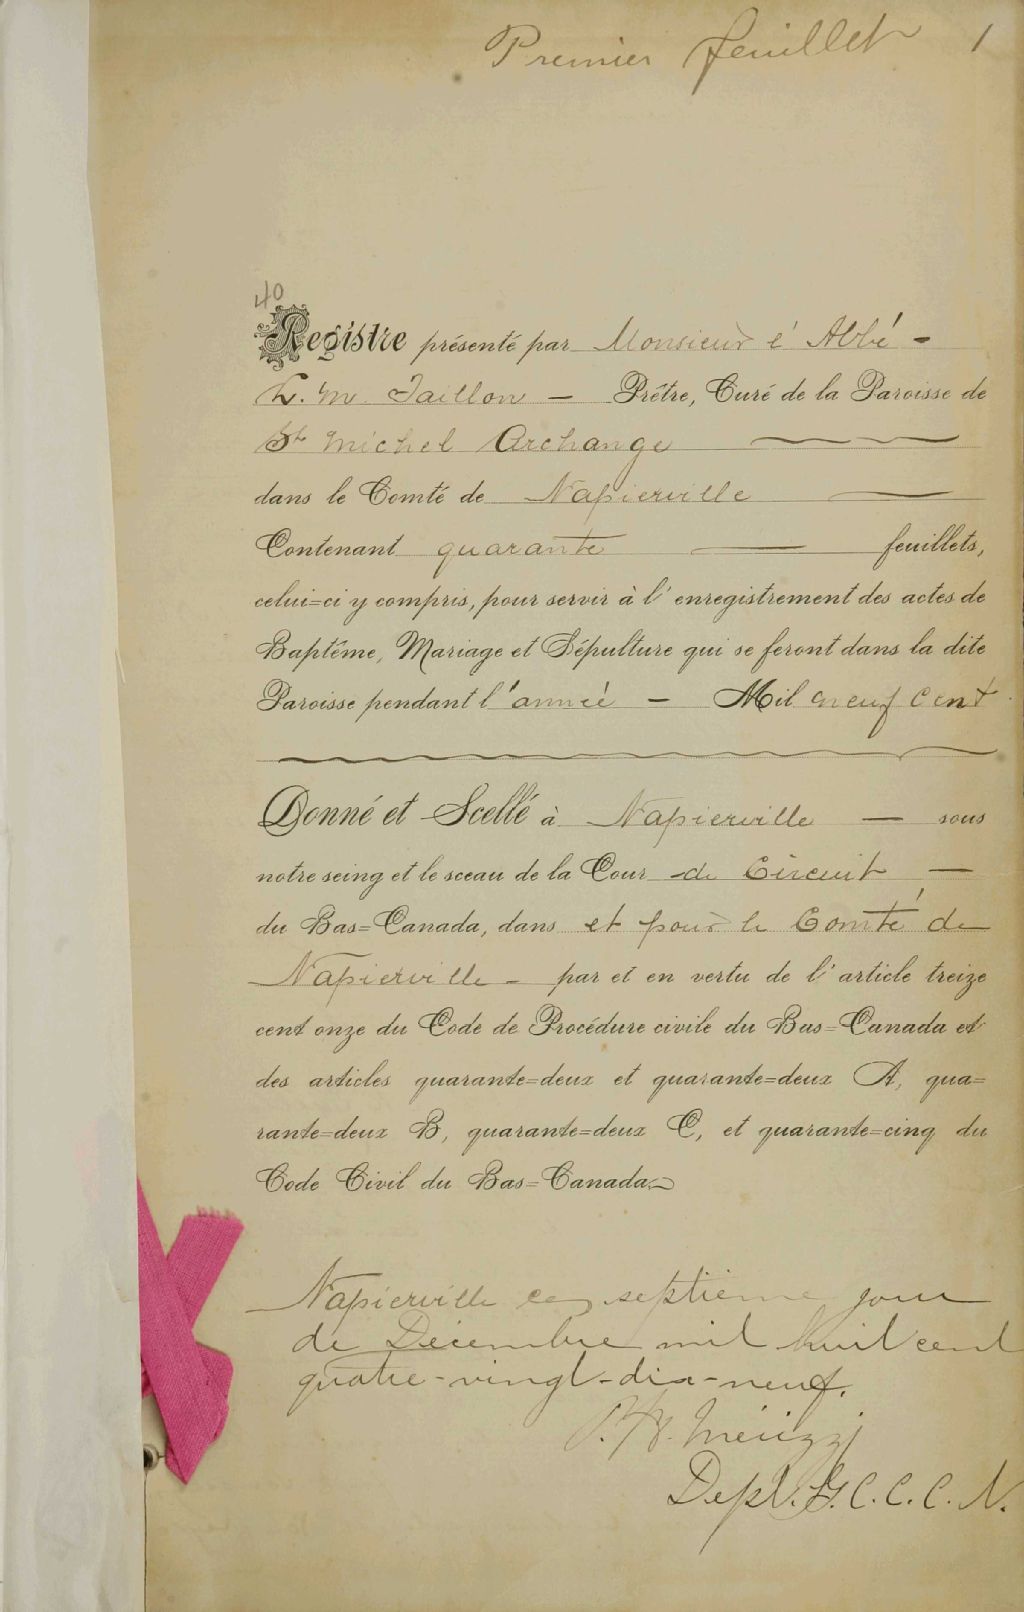 Premier feuillet 1
40
Registre présenté par Monsieur l'Abbé -
L. M. Taillon — Prêtre, Curé de la Paroisse de
St Michel Archange
dans le Comté de Napierville
Contenant quarante — feuillets,
celui=ci y compris, pour servir à l'enregistrement des actes de
Baptême, Mariage et Sépulture qui se feront dans la dite
Paroisse pendant l'année — Mil neuf cent
Donné et Scellé à Napierville — sous
notre seing et le sceau de la Cour de Circuit —
du Bas=Canada, dans et pour le Comté de
Napierville - par et en vertu de l'article treize
cent onze du Code de Procédure civile du Bas=Canada et
des articles quarante=deux et quarante=deux A, qua=
rante=deux B, quarante=deux C, et quarante=cinq du
Code Civil du Bas=Canada.
Napierville ce septième jour
de Décembre mil huit cent
quatre-vingt-dix-neuf.
Dept. G. C. C. C. N.